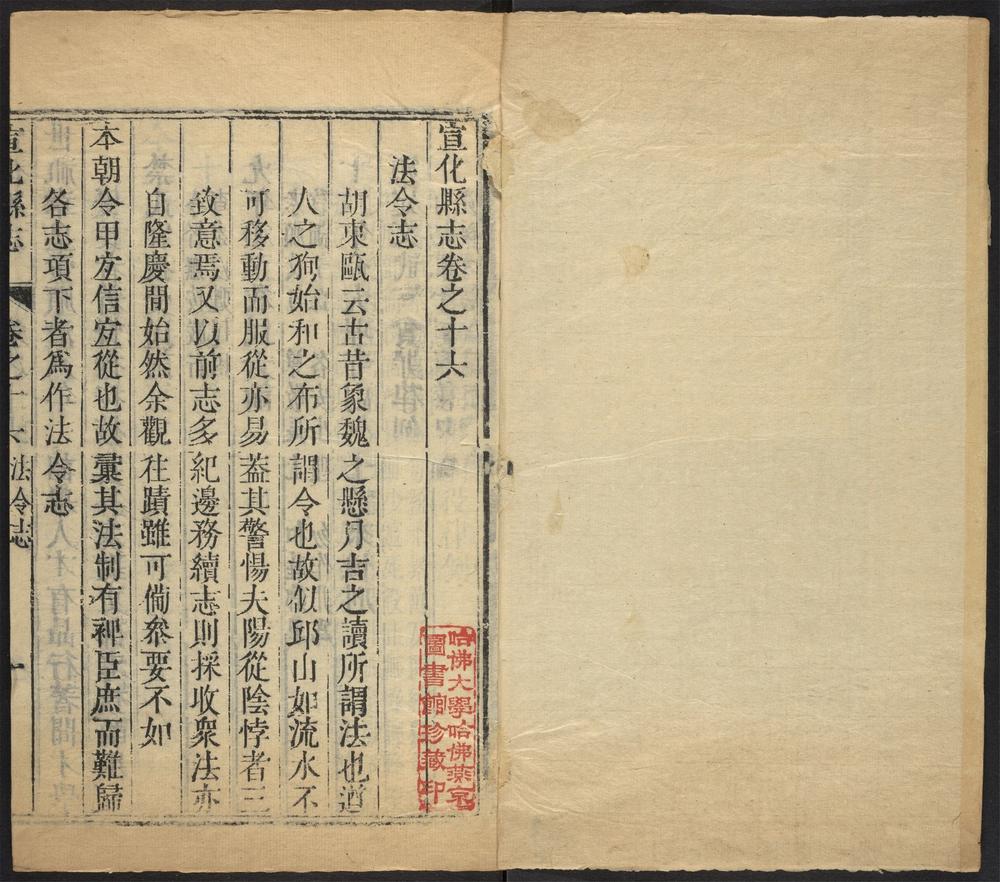 宣化縣志卷之十六
法令志
胡東甌云古昔象魏之懸月吉之讀所謂法也遒
人之狥始和之布所謂令也故似邱山如流水不
可移動而服從亦易葢其警惕夫陽從陰悖者三
致意焉又以前志多紀邊務續志則採收衆法亦
自隆慶間始然余觀往蹟雖可備叅要不如
本朝令甲宐信宐從也故彚其法制有裨臣庶而難歸
各志項下者爲作法令志
宣化縣志 卷之十六 法令志 十
哈佛大學哈佛燕京
圖書館珍藏印